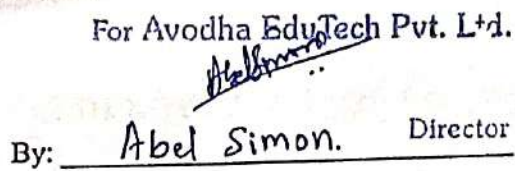 For Avodha EduTech Pvt. Ltd.
AbelSimon
By: Abel Simon. Director